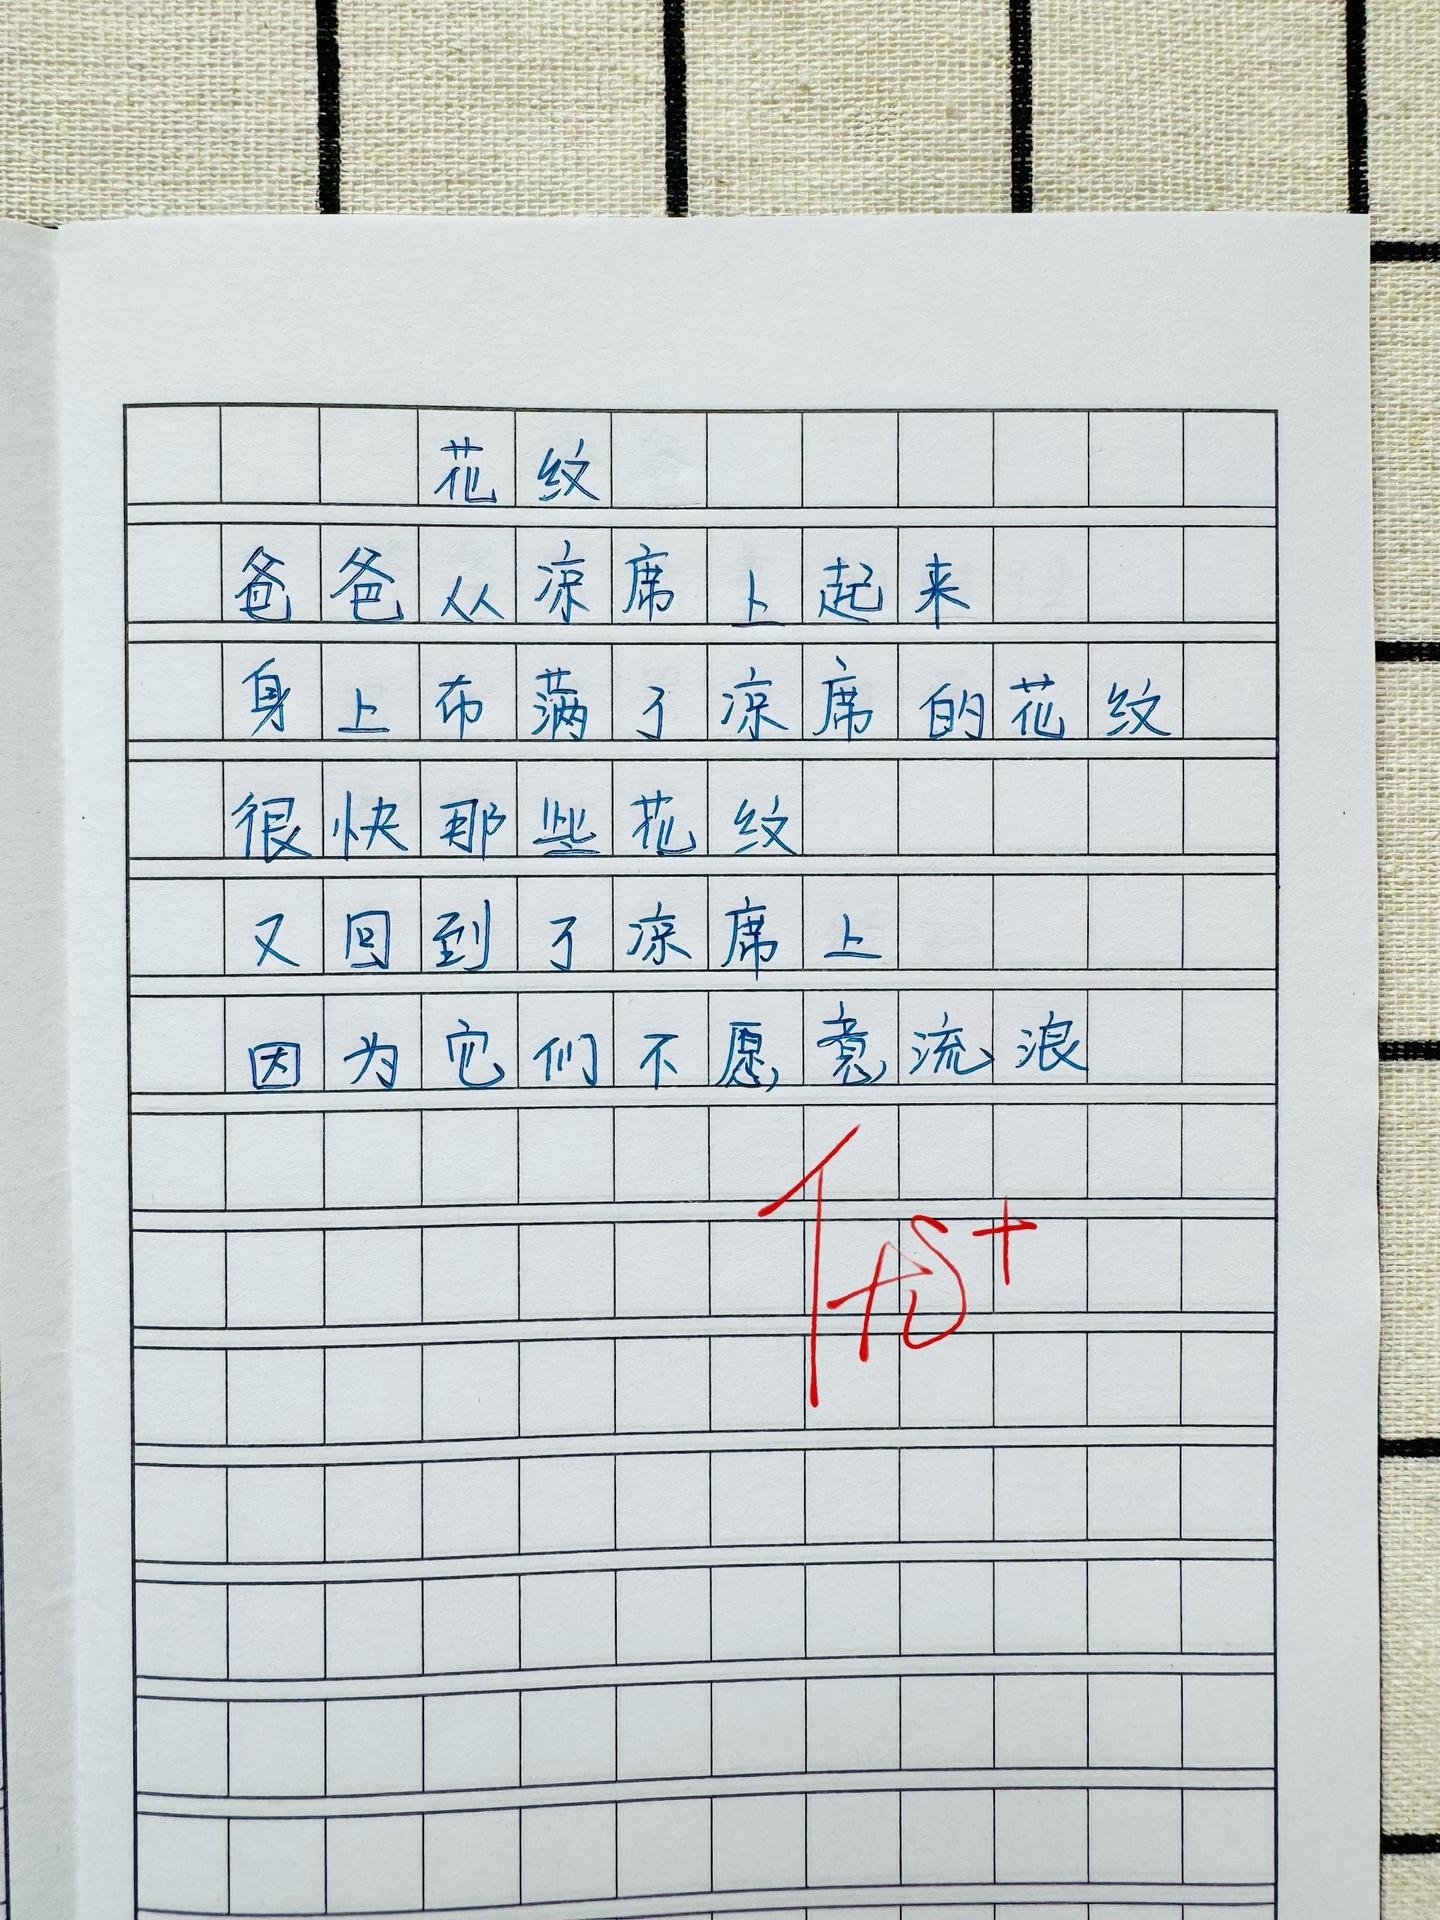 花纹
爸爸从凉席上起来
身上布满了凉席的花纹
很快那些花纹
又回到了凉席上
因为它们不愿意流浪